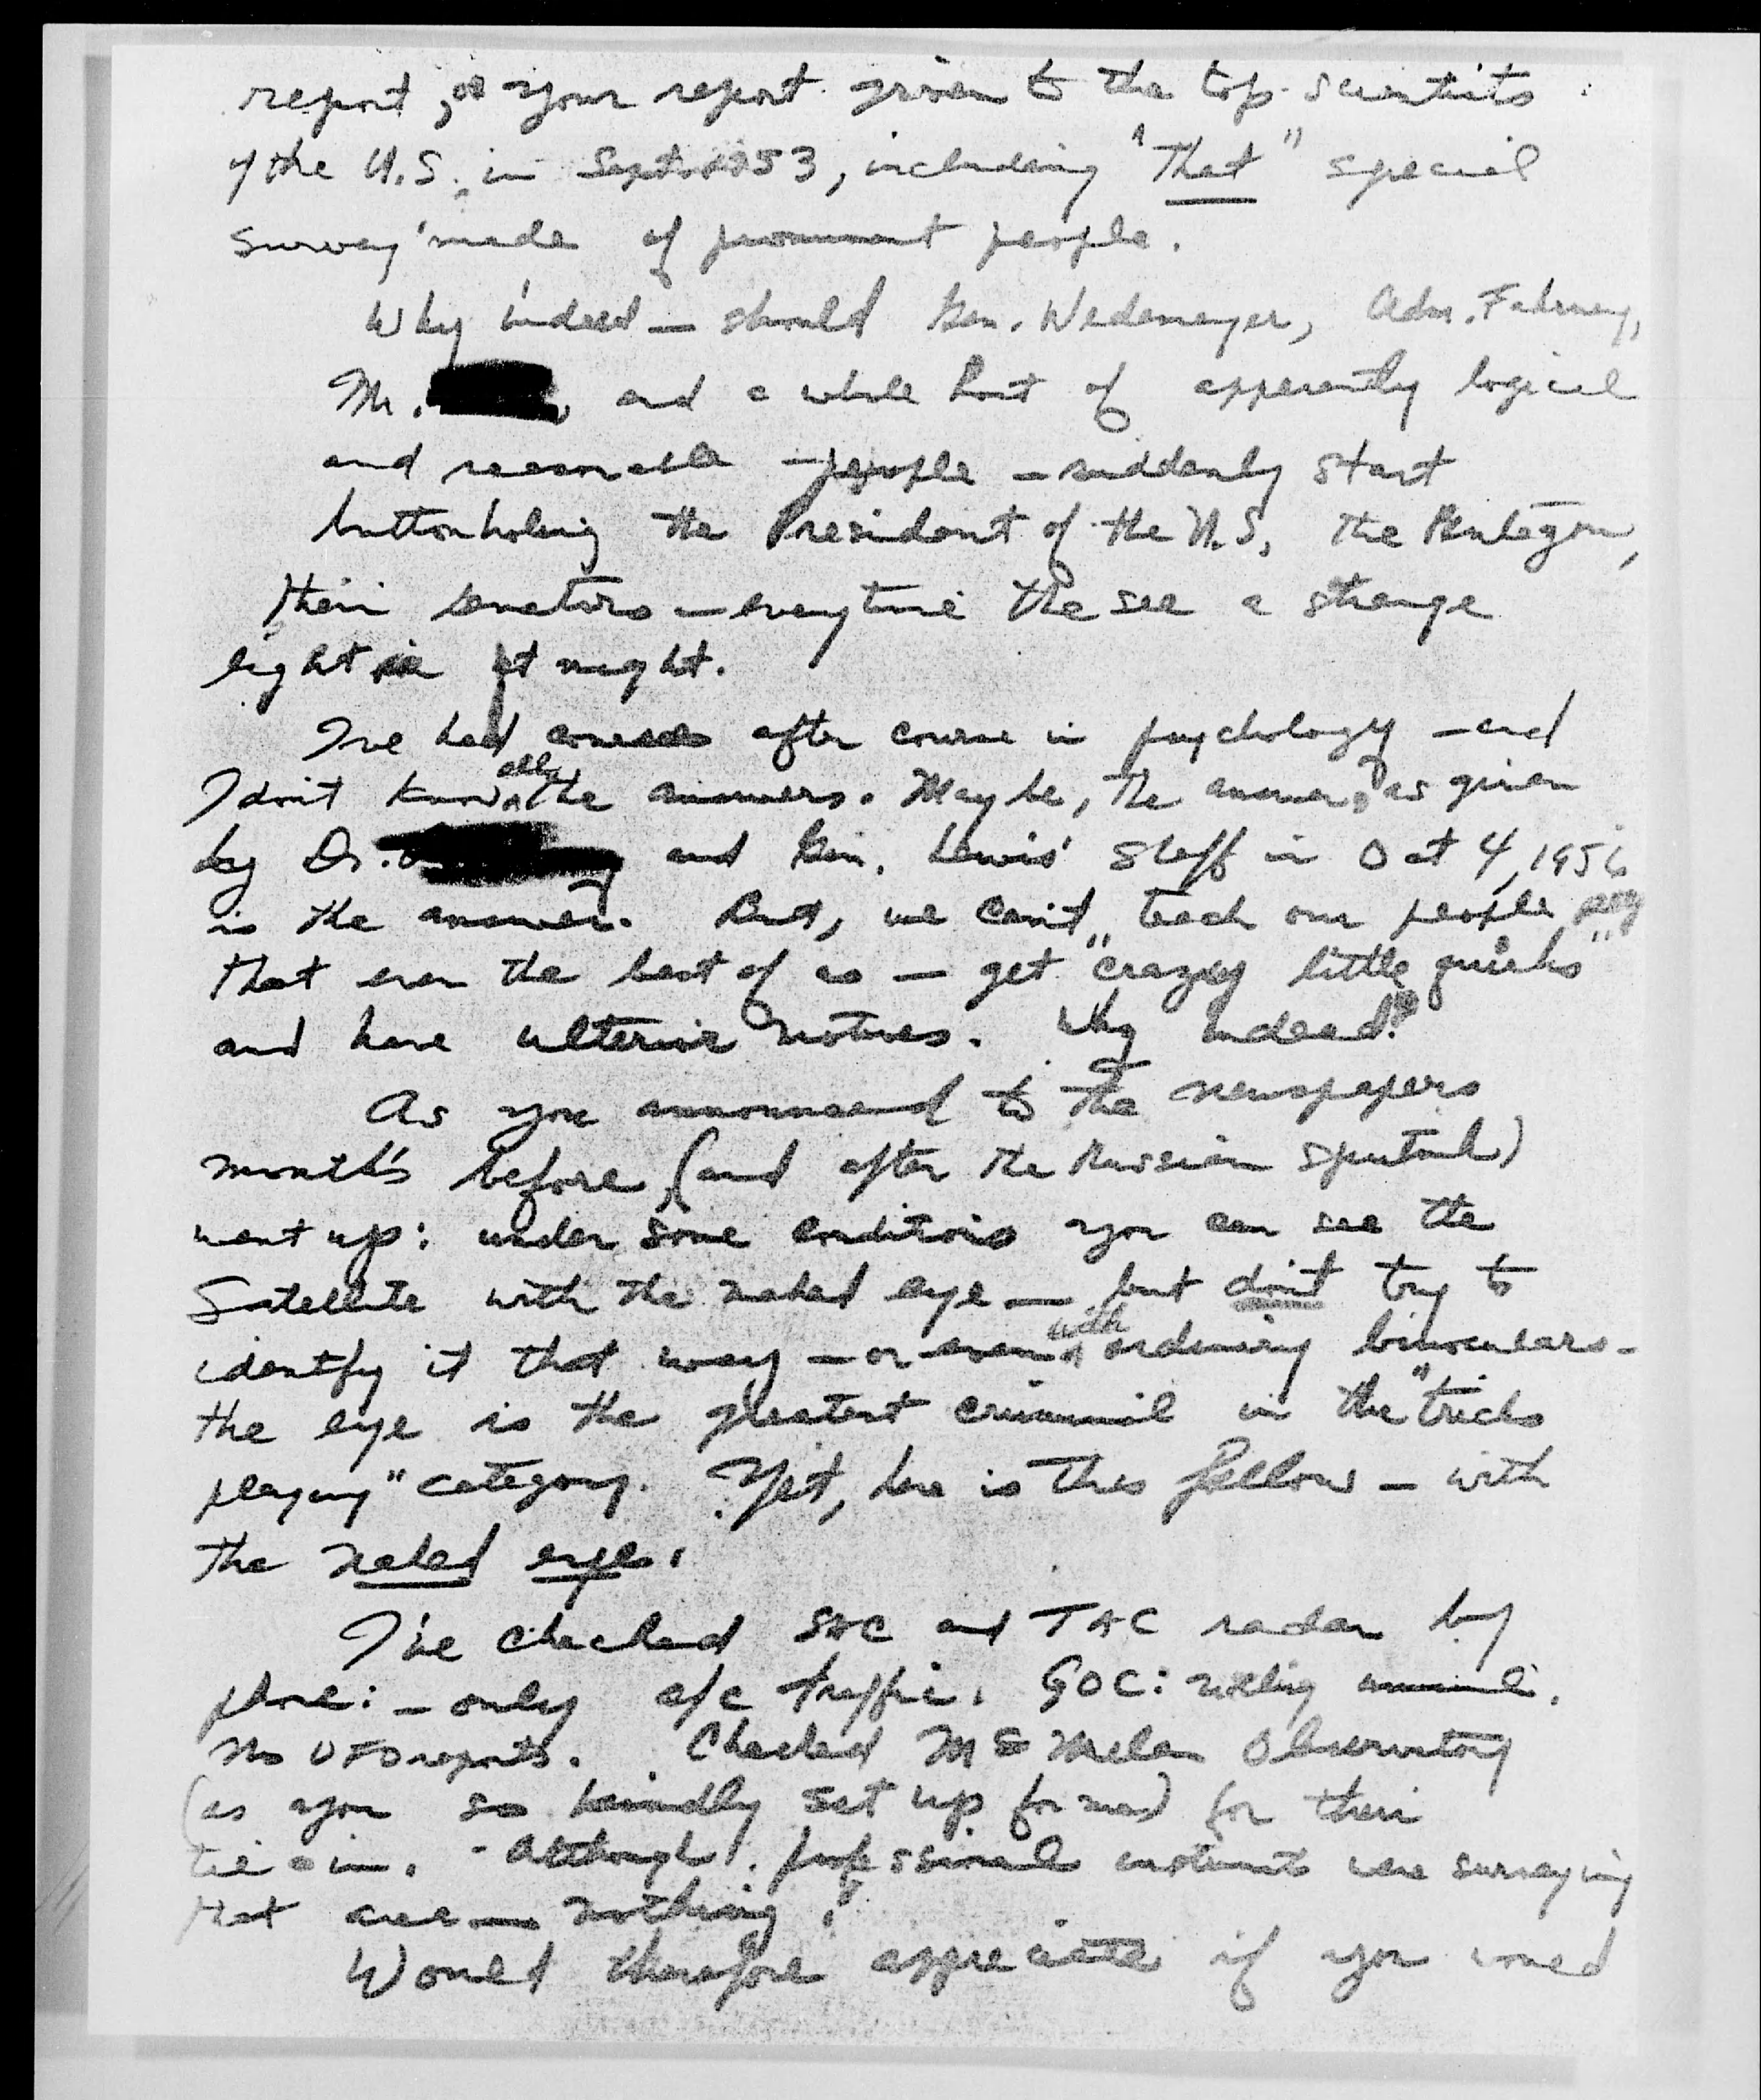 report, or your report given to the top scientists
of the U.S. in Sept. 1953, including "That" special
survey made of prominent people.
Why indeed — should Gen. Wedemeyer, Adm. Fahrney,
Mr. and a whole host of apparently logical
and reasonable — people — suddenly start
buttonholing the President of the U.S. the Pentagon,
their senators — everytime the see a strange
light at night.
I've had course after course in psychology — and
I don't know all the answers. Maybe, the answer, as given
by Dr. and Gen. Lewis' staff in Oct 4, 1956
is the answer. But, we can't teach our people
that even the best of us — get "crazy little quirks"
and have ulterior motives. Why indeed?
As you announced to the newspapers
month's before (and after the Russian Sputnik)
went up: under some conditions you can see the
Satellite with the naked eye — but don't try to
identify it that way — or even with ordinary binoculars —
the eye is the greatest criminal in the "tricks
playing" category. Yet, here is this fellow — with
the naked eye.
I've checked SAC and TAC radar by
phone: — only a/c traffic. GOC: nothing unusual.
No UFO reports. Checked McMillan Observatory
(as you so kindly set up for me) for their
tie-in. Although professional instruments were surveying
that area — nothing!
Would therefore appreciate if you would